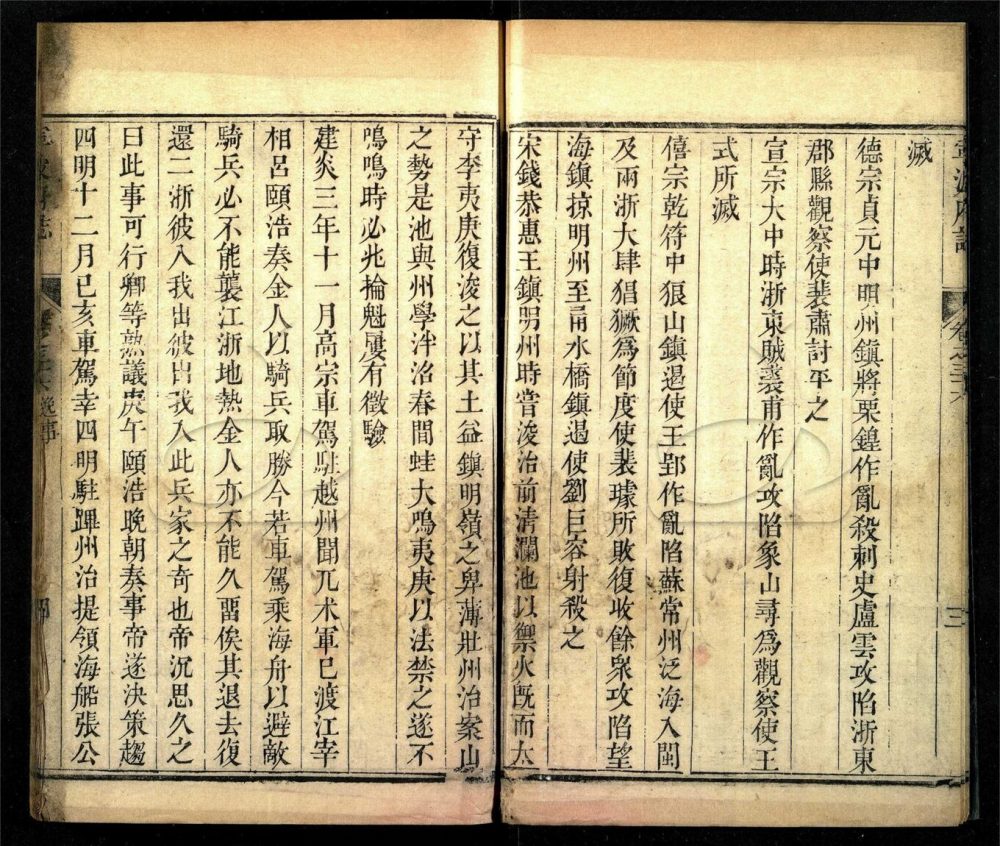 滅
德宗貞元中明州鎮將栗鍠作亂殺刺史盧雲攻陷浙東
郡縣觀察使裴肅討平之
宣宗大中時浙東賊裘甫作亂攻陷象山尋爲觀察使王
式所滅
僖宗乾符中狼山鎮遏使王郢作亂陷蘇常州泛海入閩
及兩浙大肆猖獗爲節度使裴璩所敗復收餘衆攻陷望
海鎮掠明州至甬水橋鎮遏使劉巨容射殺之
宋錢恭惠王鎮明州時嘗浚治前清瀾池以禦火旣而太
守李夷庚復浚之以其土益鎮明嶺之卑薄壯州治案山
之勢是池與州學泮洛春間蛙大鳴夷庚以法禁之遂不
鳴鳴時必兆掄魁屢有徵驗
建炎三年十一月高宗車駕駐越州聞兀术軍已渡江宰
相呂頤浩奏金人以騎兵取勝今若車駕乘海舟以避敵
騎兵必不能襲江浙地熱金人亦不能久畱俟其退去復
還二浙彼入我出彼出我入此兵家之奇也帝沉思久之
曰此事可行卿等熟議庚午頤浩晚朝奏事帝遂決策趨
四明十二月已亥車駕幸四明駐蹕州治提領海船張公